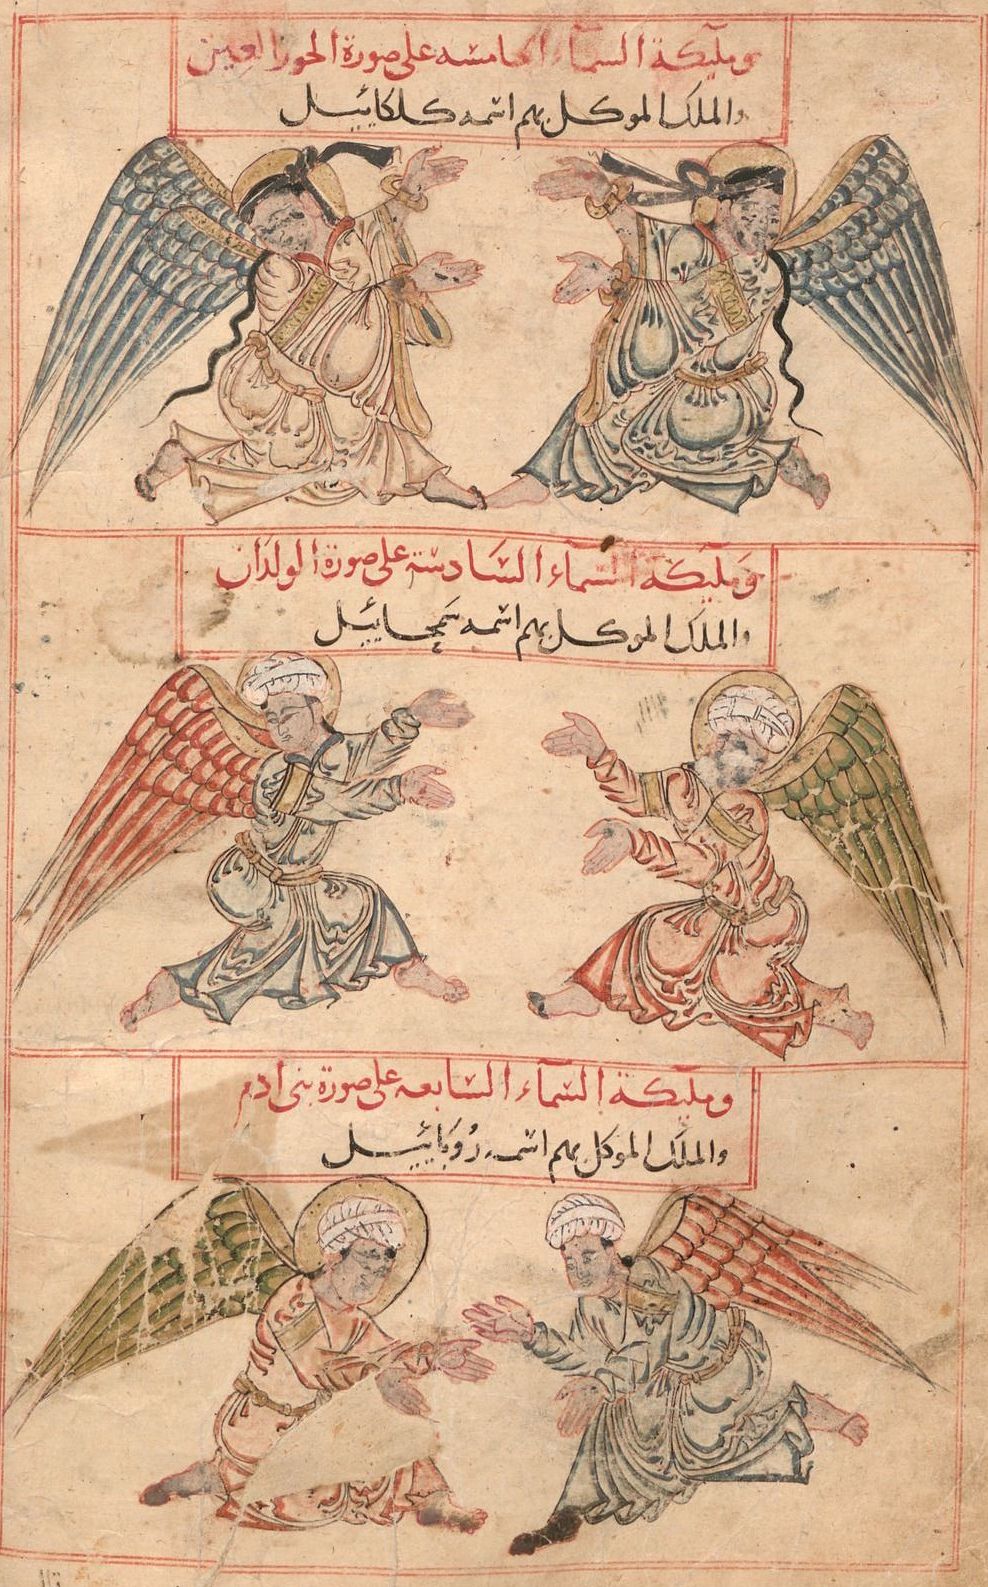 ومليكة السماء الخامسه على صورة الحور العين
والملك الموكل بهم اسمه كلكاييل
ومليكة السماء السادسة على صورة الولدان
والملك الموكل بهم اسمه سمحاييل
ومليكة السماء السابعه على صورة بنى ادم
والملك الموكل بهم اسمه روباييل